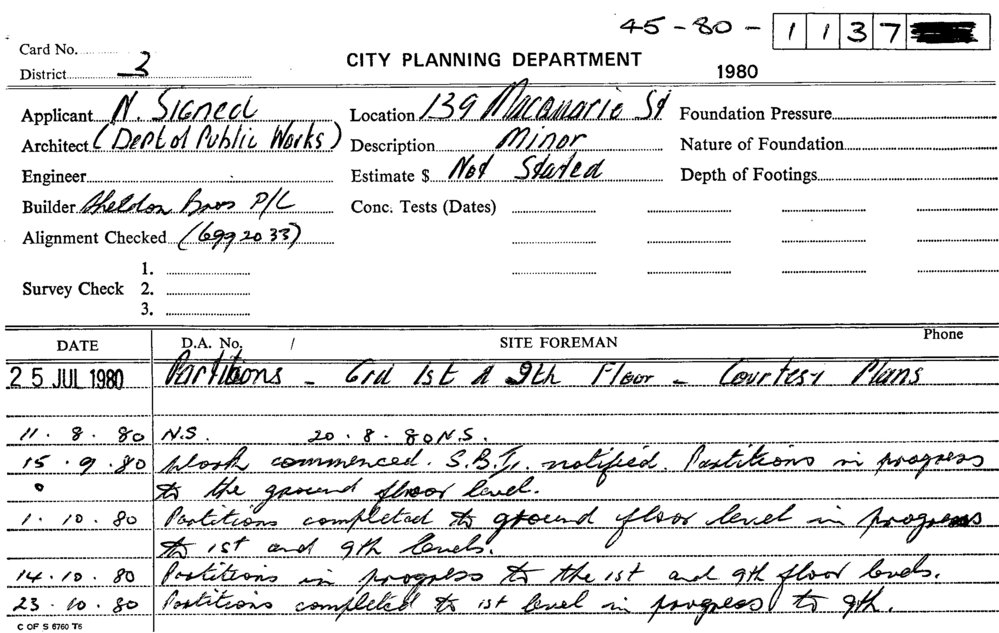 45-80- 1137
Card No.
District 3
CITY PLANNING DEPARTMENT
1980
Applicant N. Signed
Location 139 Macquarie St
Foundation Pressure
Architect (Dept of Public Works)
Description Minor
Nature of Foundation
Engineer
Estimate $ Not Stated
Depth of Footings
Builder Sheldon Bros P/L
Conc. Tests (Dates)
Alignment Checked (6992033)
1.
Survey Check 2.
3.
DATE D.A. No. / SITE FOREMAN Phone
25 JUL 1980 Partitions - Grd 1st & 9th Floor - Courtesy Plans
11.8.80 N.S. 20.8.80 N.S.
15.9.80 Work commenced. S.B.I. notified. Partitions in progress
to the ground floor level.
1.10.80 Partitions completed to ground floor level in progress
to 1st and 9th levels.
14.10.80 Partitions in progress to the 1st and 9th floor levels.
23.10.80 Partitions completed to 1st level in progress to 9th.
C OF S 6760 T6